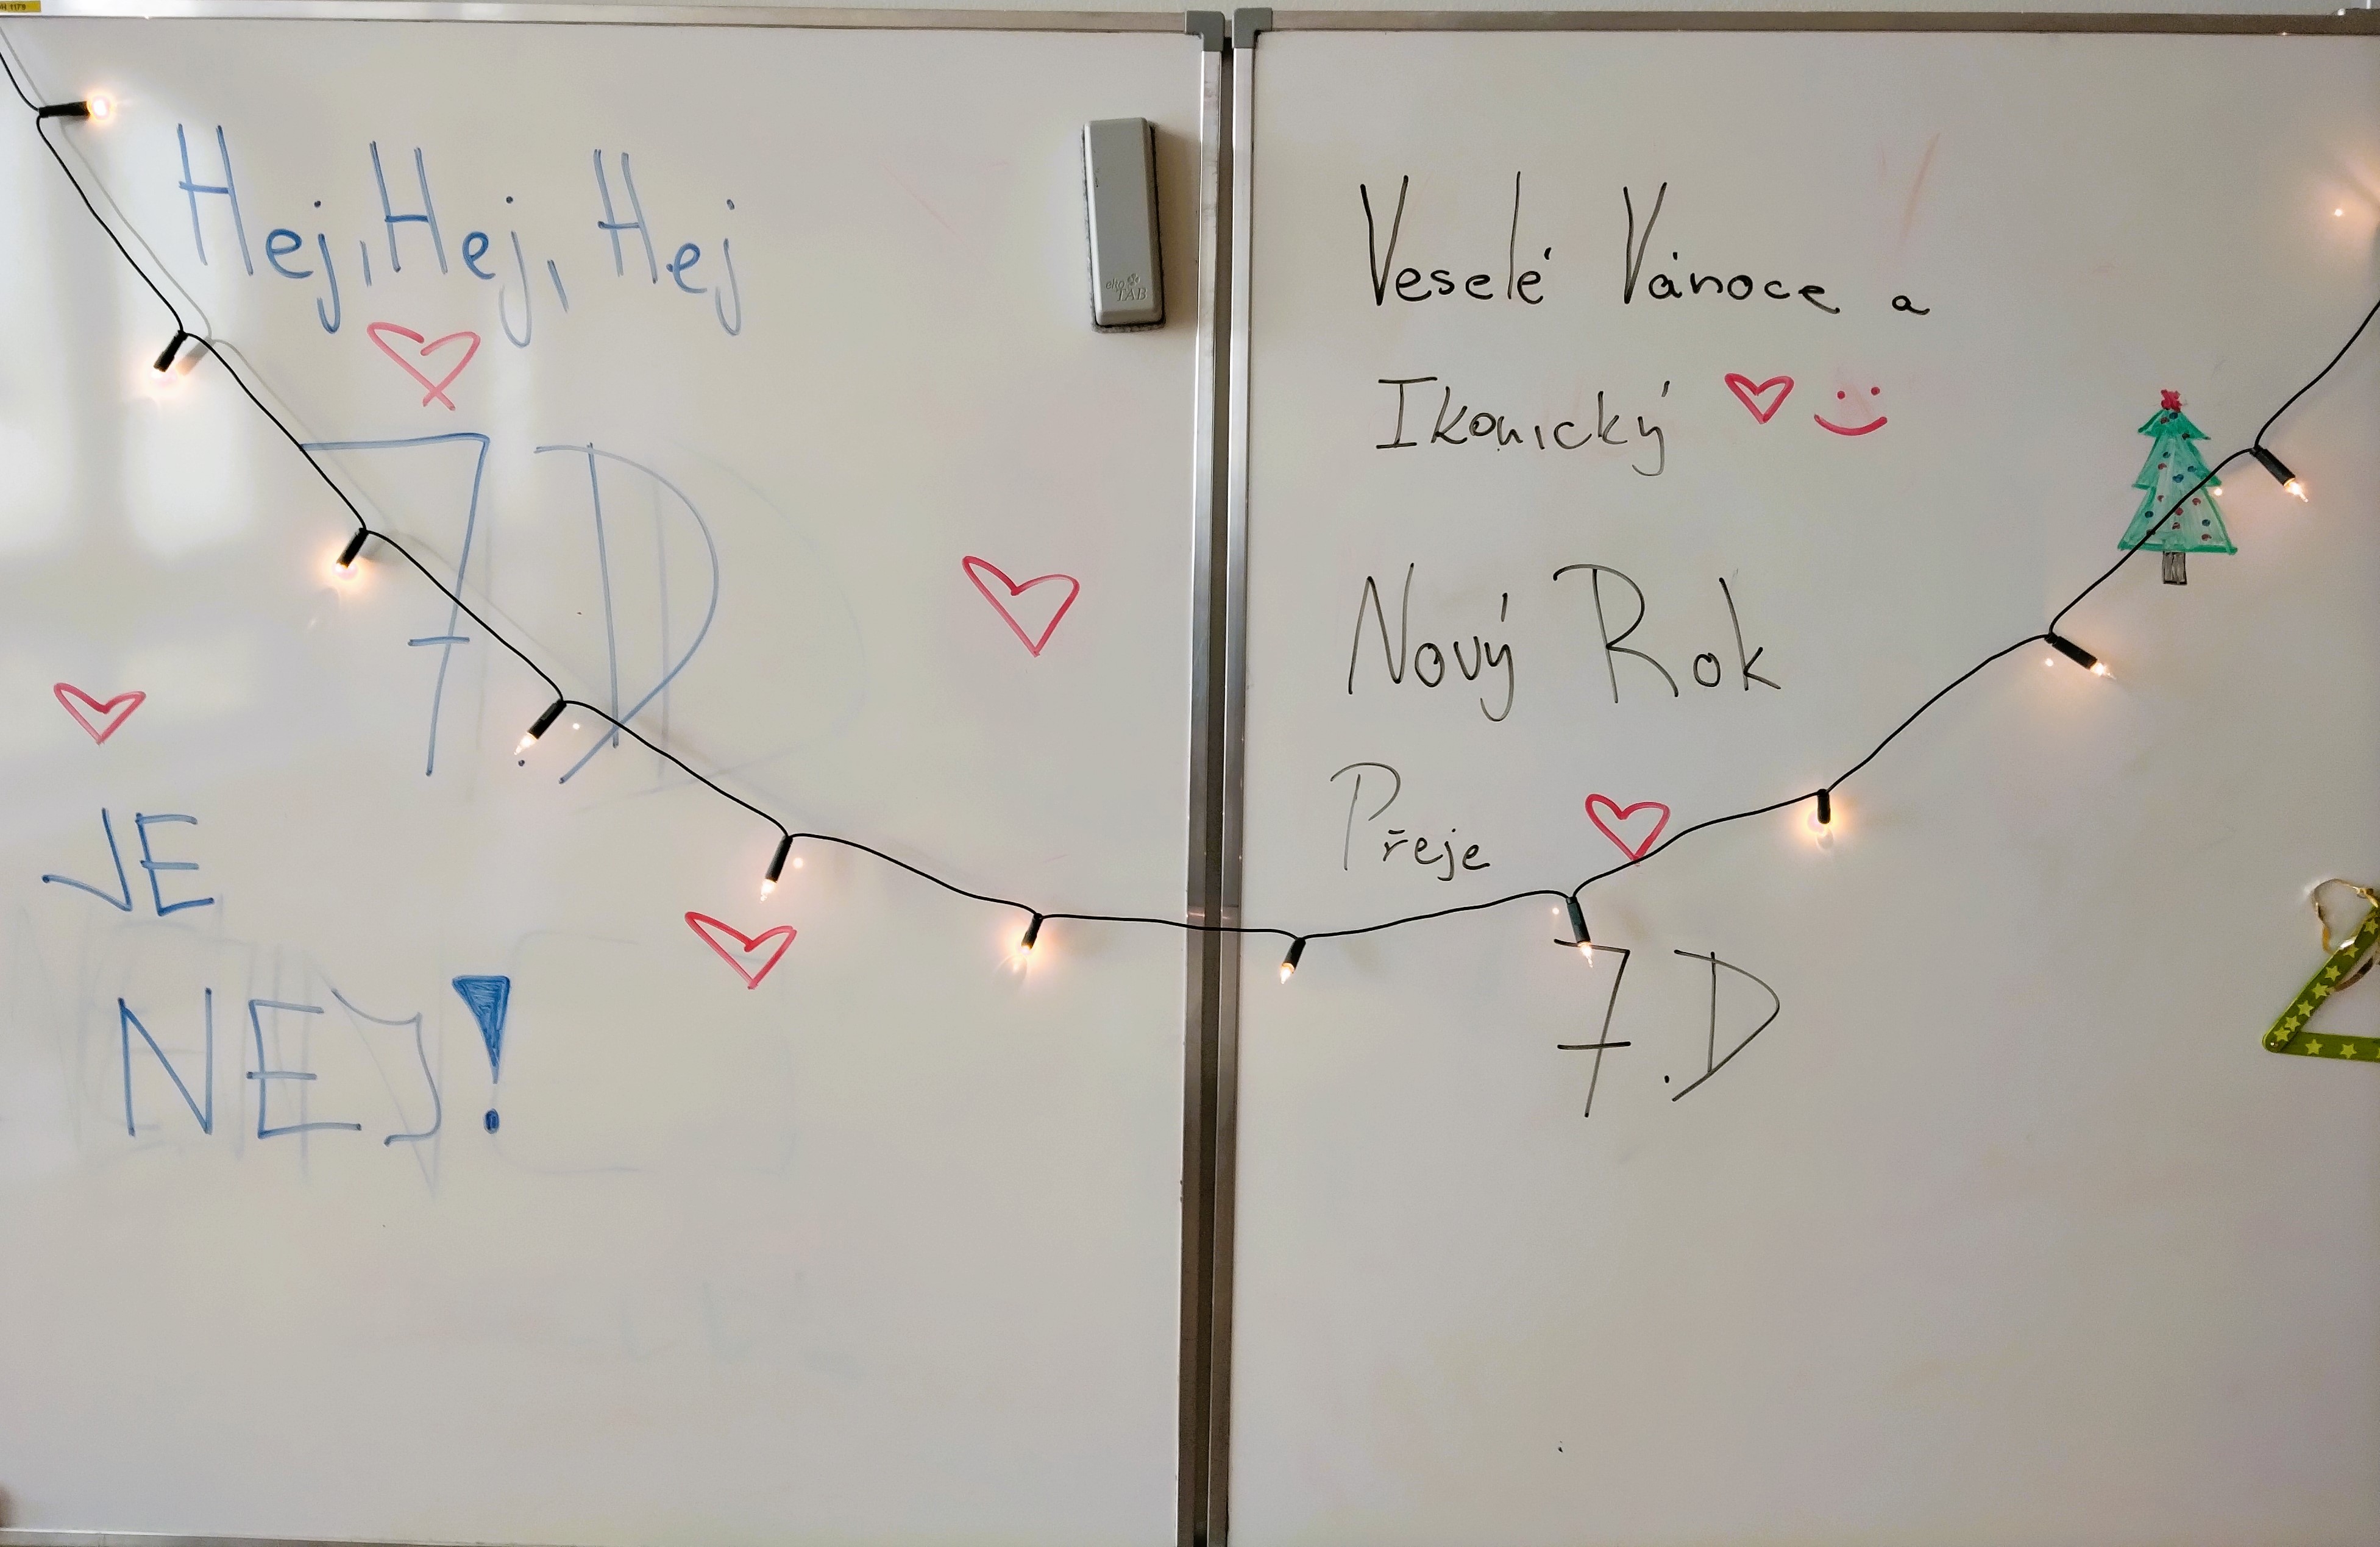 Hej, Hej, Hej
7.D
JE
NEJ!
elko
TAB
Veselé Vánoce a
Ikonický
Nový Rok
Přeje
7.D